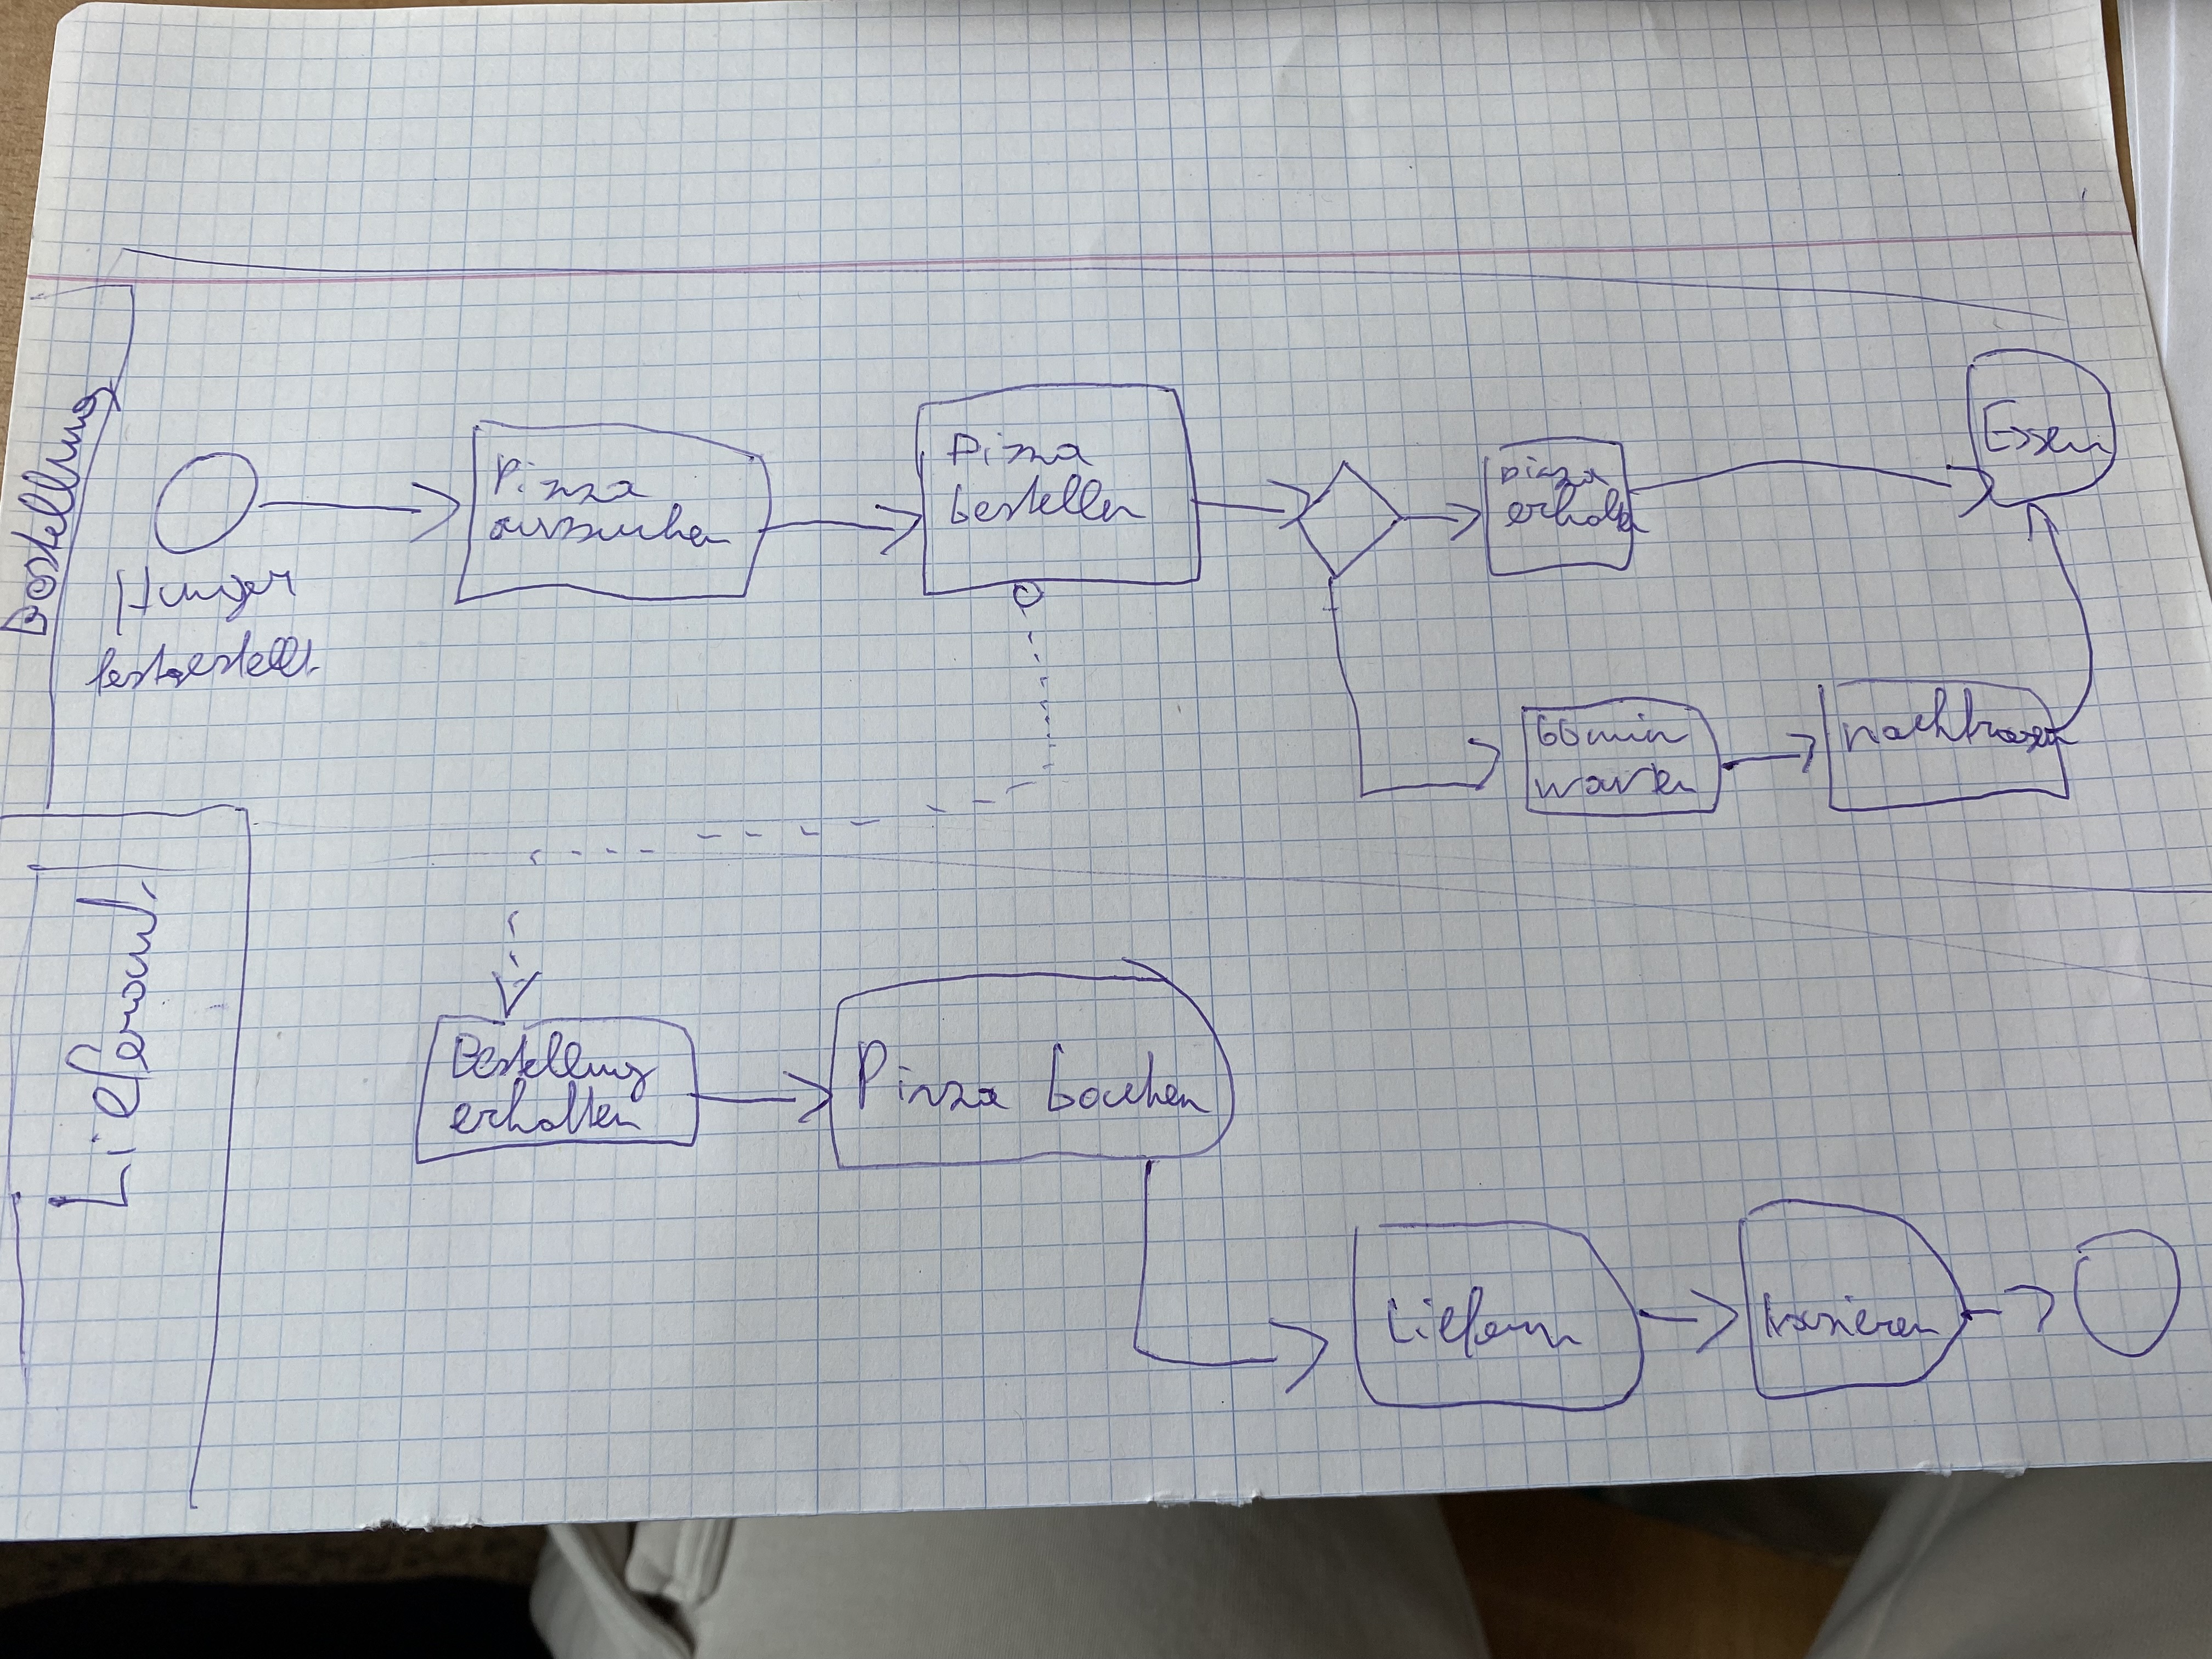 Bestellung
Hunger
festgestellt
Pizza
aussuchen
Pizza
bestellen
pizza
erhalten
60 min
warten
nachfragen
Essen
Lieferant
Bestellung
erhalten
Pizza backen
Liefern
kassieren